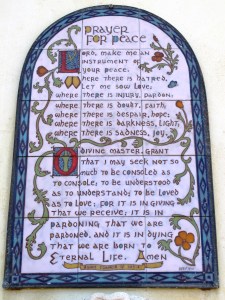 PRAYER
FOR PEACE
LORD, MAKE ME AN
INSTRUMENT OF
YOUR PEACE;
WHERE THERE IS HATRED,
LET ME SOW LOVE;
WHERE THERE IS INJURY, PARDON;
WHERE THERE IS DOUBT, FAITH;
WHERE THERE IS DESPAIR, HOPE;
WHERE THERE IS DARKNESS, LIGHT;
WHERE THERE IS SADNESS, JOY.
O DIVINE MASTER, GRANT
THAT I MAY SEEK NOT SO
MUCH TO BE CONSOLED AS
TO CONSOLE; TO BE UNDERSTOOD
AS TO UNDERSTAND; TO BE LOVED
AS TO LOVE; FOR IT IS IN GIVING
THAT WE RECEIVE; IT IS IN
PARDONING THAT WE ARE
PARDONED, AND IT IS IN DYING
THAT WE ARE BORN TO
ETERNAL LIFE. AMEN